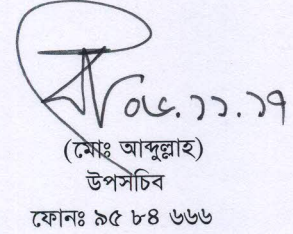 ০৫.১১.১৭
(মোঃ আব্দুল্লাহ)
উপসচিব
ফোনঃ ৯৫ ৮৪ ৬৬৬